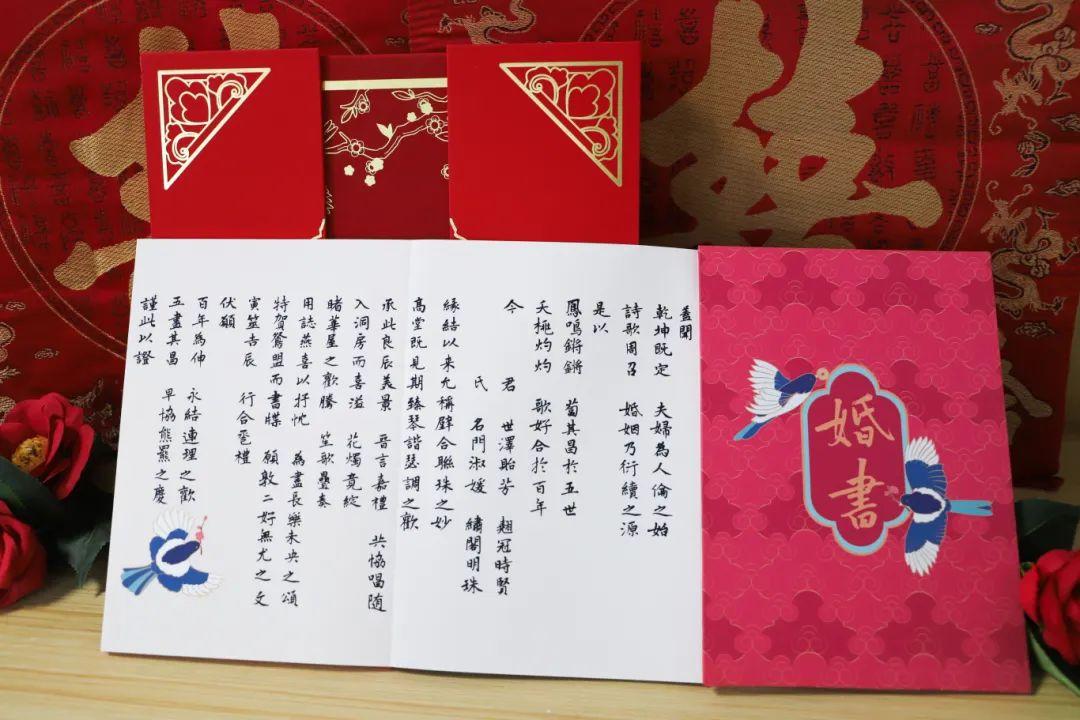 蓋聞
乾坤既定 夫婦為人倫之始
詩歌周召 婚姻乃衍續之源
是以
鳳鳴鏘鏘 其昌於五世
夭桃灼灼 歌好合於百年
今 君 世澤貽芳 翹冠時賢
氏 名門淑媛 繡閣明珠
緣結以来允稱璧合聯珠之妙
高堂既見期臻琴諧瑟調之歡
承此良辰美景 言嘉禮 共協唱随
入洞房而喜溢 花燭竟綻
睹華屋之歡騰 笙歌疊奏
用誌燕喜以抒忱 為盡長樂未央之頌
特賀鴛盟而書牒 願敦二好無尤之文
寅筮吉辰 行合巹禮
伏願
百年為伸 永結連理之歡
五盡其昌 早協熊羆之慶
謹此以證
婚書